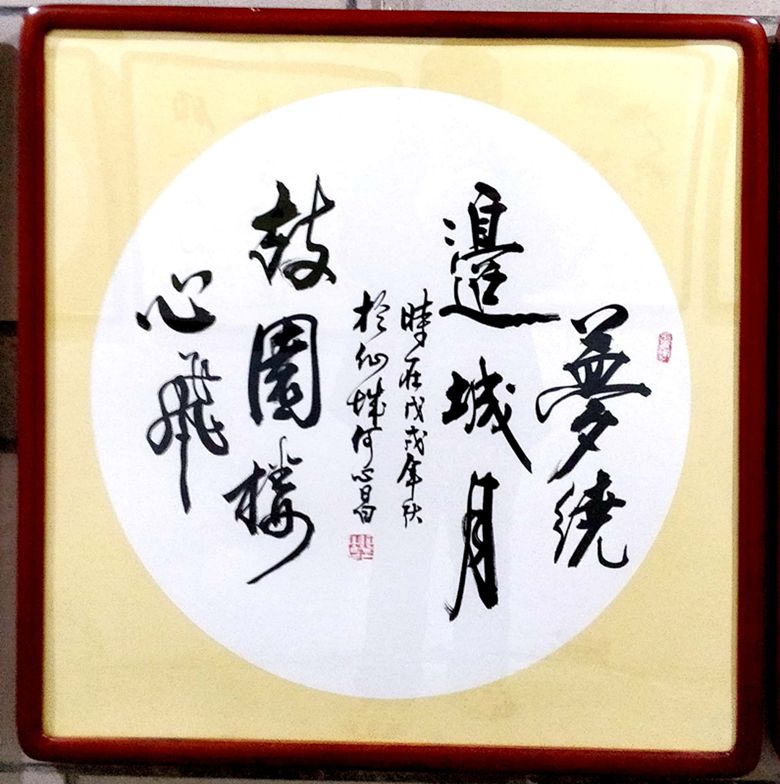 夢繞
邊城月
心飛
故園樓
時在戊戌年秋
於仙城何心昌